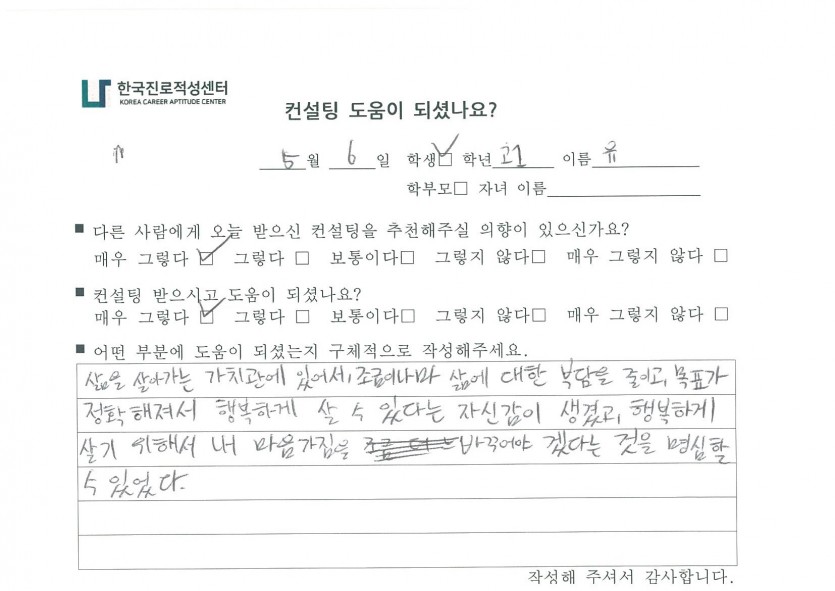 한국진로적성센터
KOREA CAREER APTITUDE CENTER
컨설팅 도움이 되셨나요?
5월 6일 학생☑ 학년 고1 이름 유
학부모□ 자녀 이름
■ 다른 사람에게 오늘 받으신 컨설팅을 추천해주실 의향이 있으신가요?
매우 그렇다 ☑ 그렇다 □ 보통이다□ 그렇지 않다□ 매우 그렇지 않다 □
■ 컨설팅 받으시고 도움이 되셨나요?
매우 그렇다 ☑ 그렇다 □ 보통이다□ 그렇지 않다□ 매우 그렇지 않다 □
■ 어떤 부분에 도움이 되셨는지 구체적으로 작성해주세요.
삶을 살아가는 가치관에 있어서, 조금이나마 삶에 대한 부담을 줄이고, 목표가
정확해져서 행복하게 살 수 있다는 자신감이 생겼고, 행복하게
살기 위해서 내 마음가짐을 바꾸어야 겠다는 것을 명심할
수 있었다.
작성해 주셔서 감사합니다.